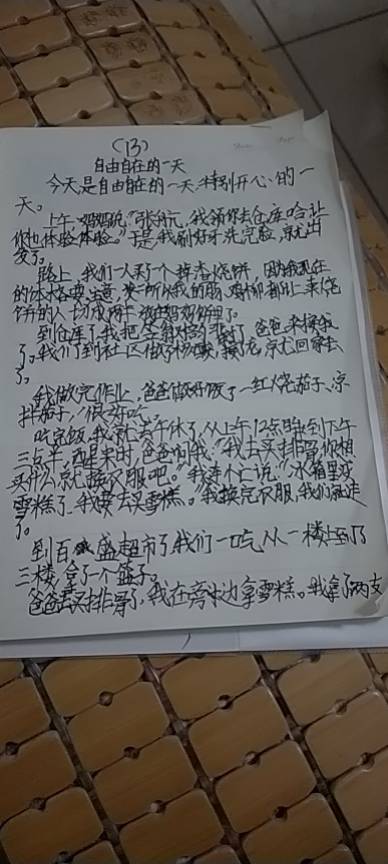 (13)
自由自在的一天
今天是自由自在的一天,特别开心的一
天。
上午妈妈说:“张航元,我领你去仓库哈让
你也体验体验。”于是我刷好牙洗完脸,就出
发了。
路上,我们一人买了一个掉渣烧饼,因为我现在
的体
饼的人切成两半
到仓库了我把
了。我们到社区做了核酸,就回家去
了。
我做完作业,爸爸做好饭了—红烧茄子、凉
拌茄子,很好吃。
吃完饭,我就去午休了,从上午12点睡到下午
三点半,醒来时,爸爸问我:“我去买排骨你想
买什么,就换衣服吧。”我连忙说:“冰箱里没
雪糕了,我要去买雪糕。”我换完衣服,我们就走
了。
到百盛超市了,我们一吃从一楼上到了
三楼,拿了一个篮子。
爸爸去买排骨了,我在旁边拿雪糕。我拿了两支